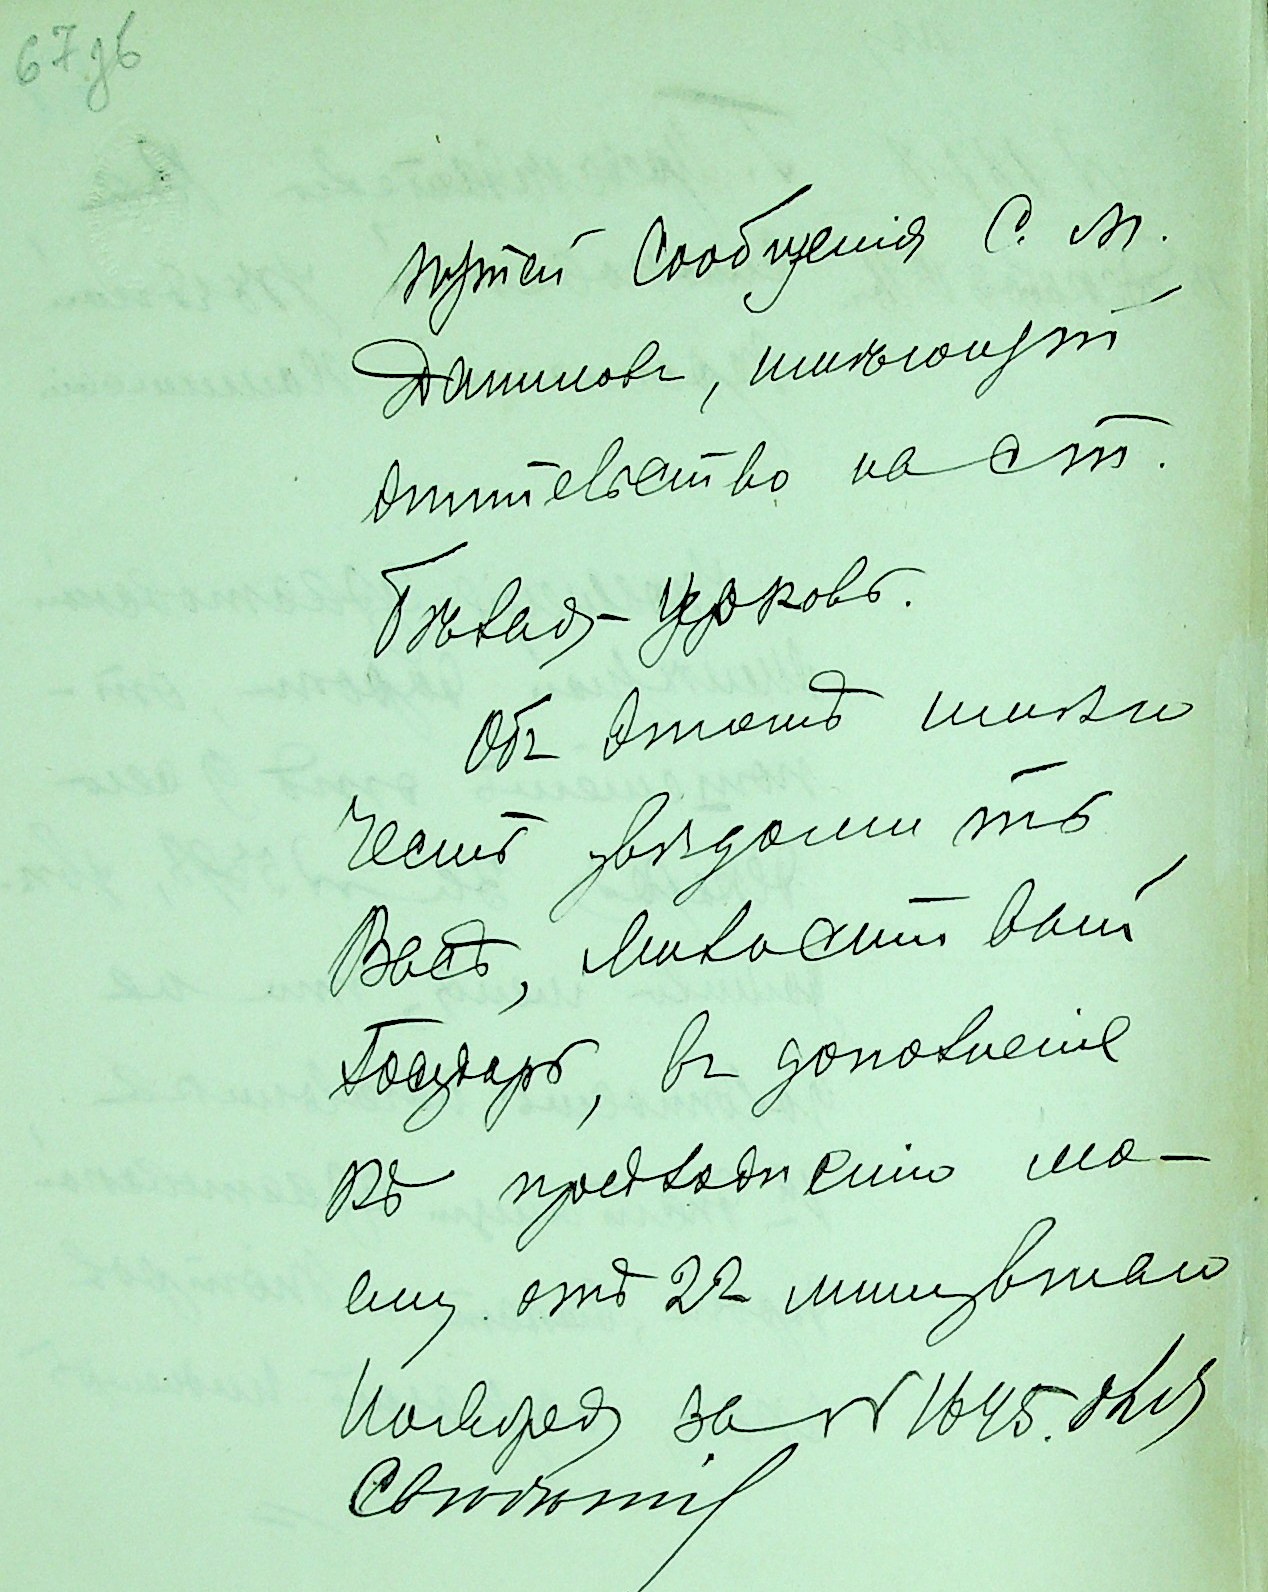 67 об
путей Сообщенія С. М.
Даниловъ, имѣющій
жительство на ст.
Бѣлая-Церковь.
Объ этомъ имѣю
честь увѣдомить
Васъ, Милостивый
Государь, въ дополненіе
къ предложенію мо-
ему отъ 22 минувшаго
Ноября за № 1645. для
свѣдѣнія